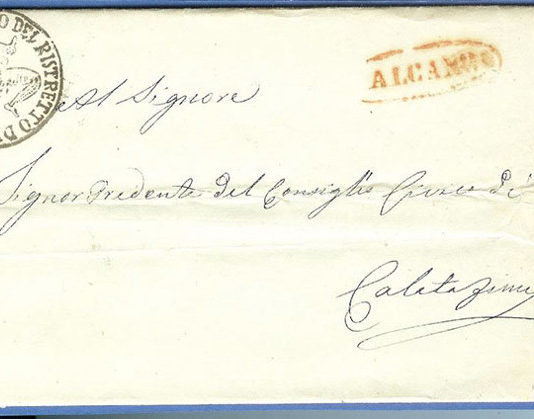 O DEL RISTRETTO DI
ALCAMO
Al Signore
Signor Predente del Consiglio Civico di
Calatafimi